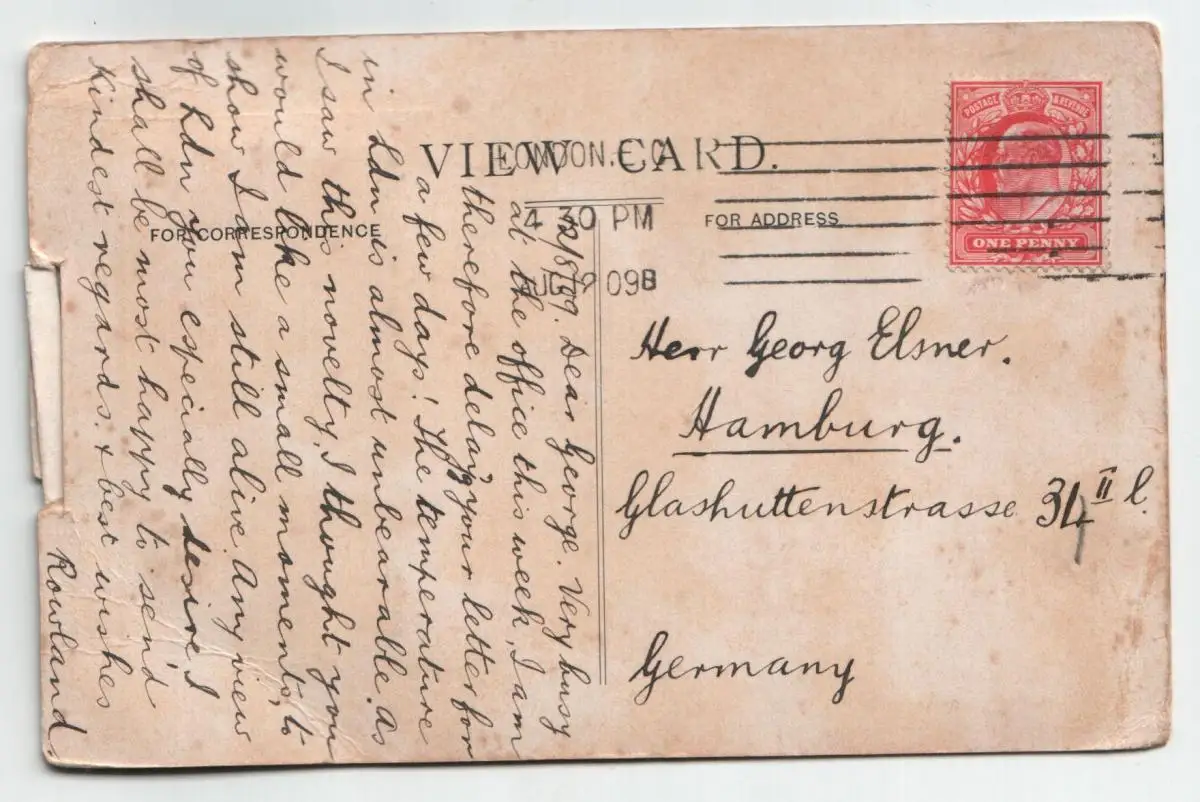 VIEW CARD.
FOR CORRESPONDENCE
FOR ADDRESS
POSTAGE & REVENUE
ONE PENNY
LONDON.
4 30 PM
AUG 09B
12/8/09. Dear George. Very busy
at the office this week, I am
therefore delay'g your letter for
a few days! The temperature
in Ldn is almost unbearable. As
I saw this novelty, I thought you
would like a small momento, to
show I am still alive. Any view
of Ldn you especially desire, I
shall be most happy to send
Kindest regards. & best wishes
Rowland.
Herr Georg Elsner.
Hamburg.
Glashuttenstrasse 34 II l.
Germany